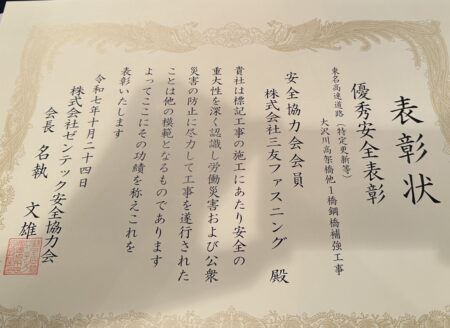 表彰状
優秀安全表彰
東名高速道路（特定更新等）
大沢川高架橋他１橋鋼橋補強工事
安全協力会会員
株式会社三友ファスニング 殿
貴社は標記工事の施工にあたり安全の
重大性を深く認識し労働災害および公衆
災害の防止に尽力して工事を遂行された
ことは他の模範となるものであります
よってここにその功績を称えこれを
表彰いたします
令和七年十月二十四日
株式会社ゼンテック安全協力会
会長 名執 文雄